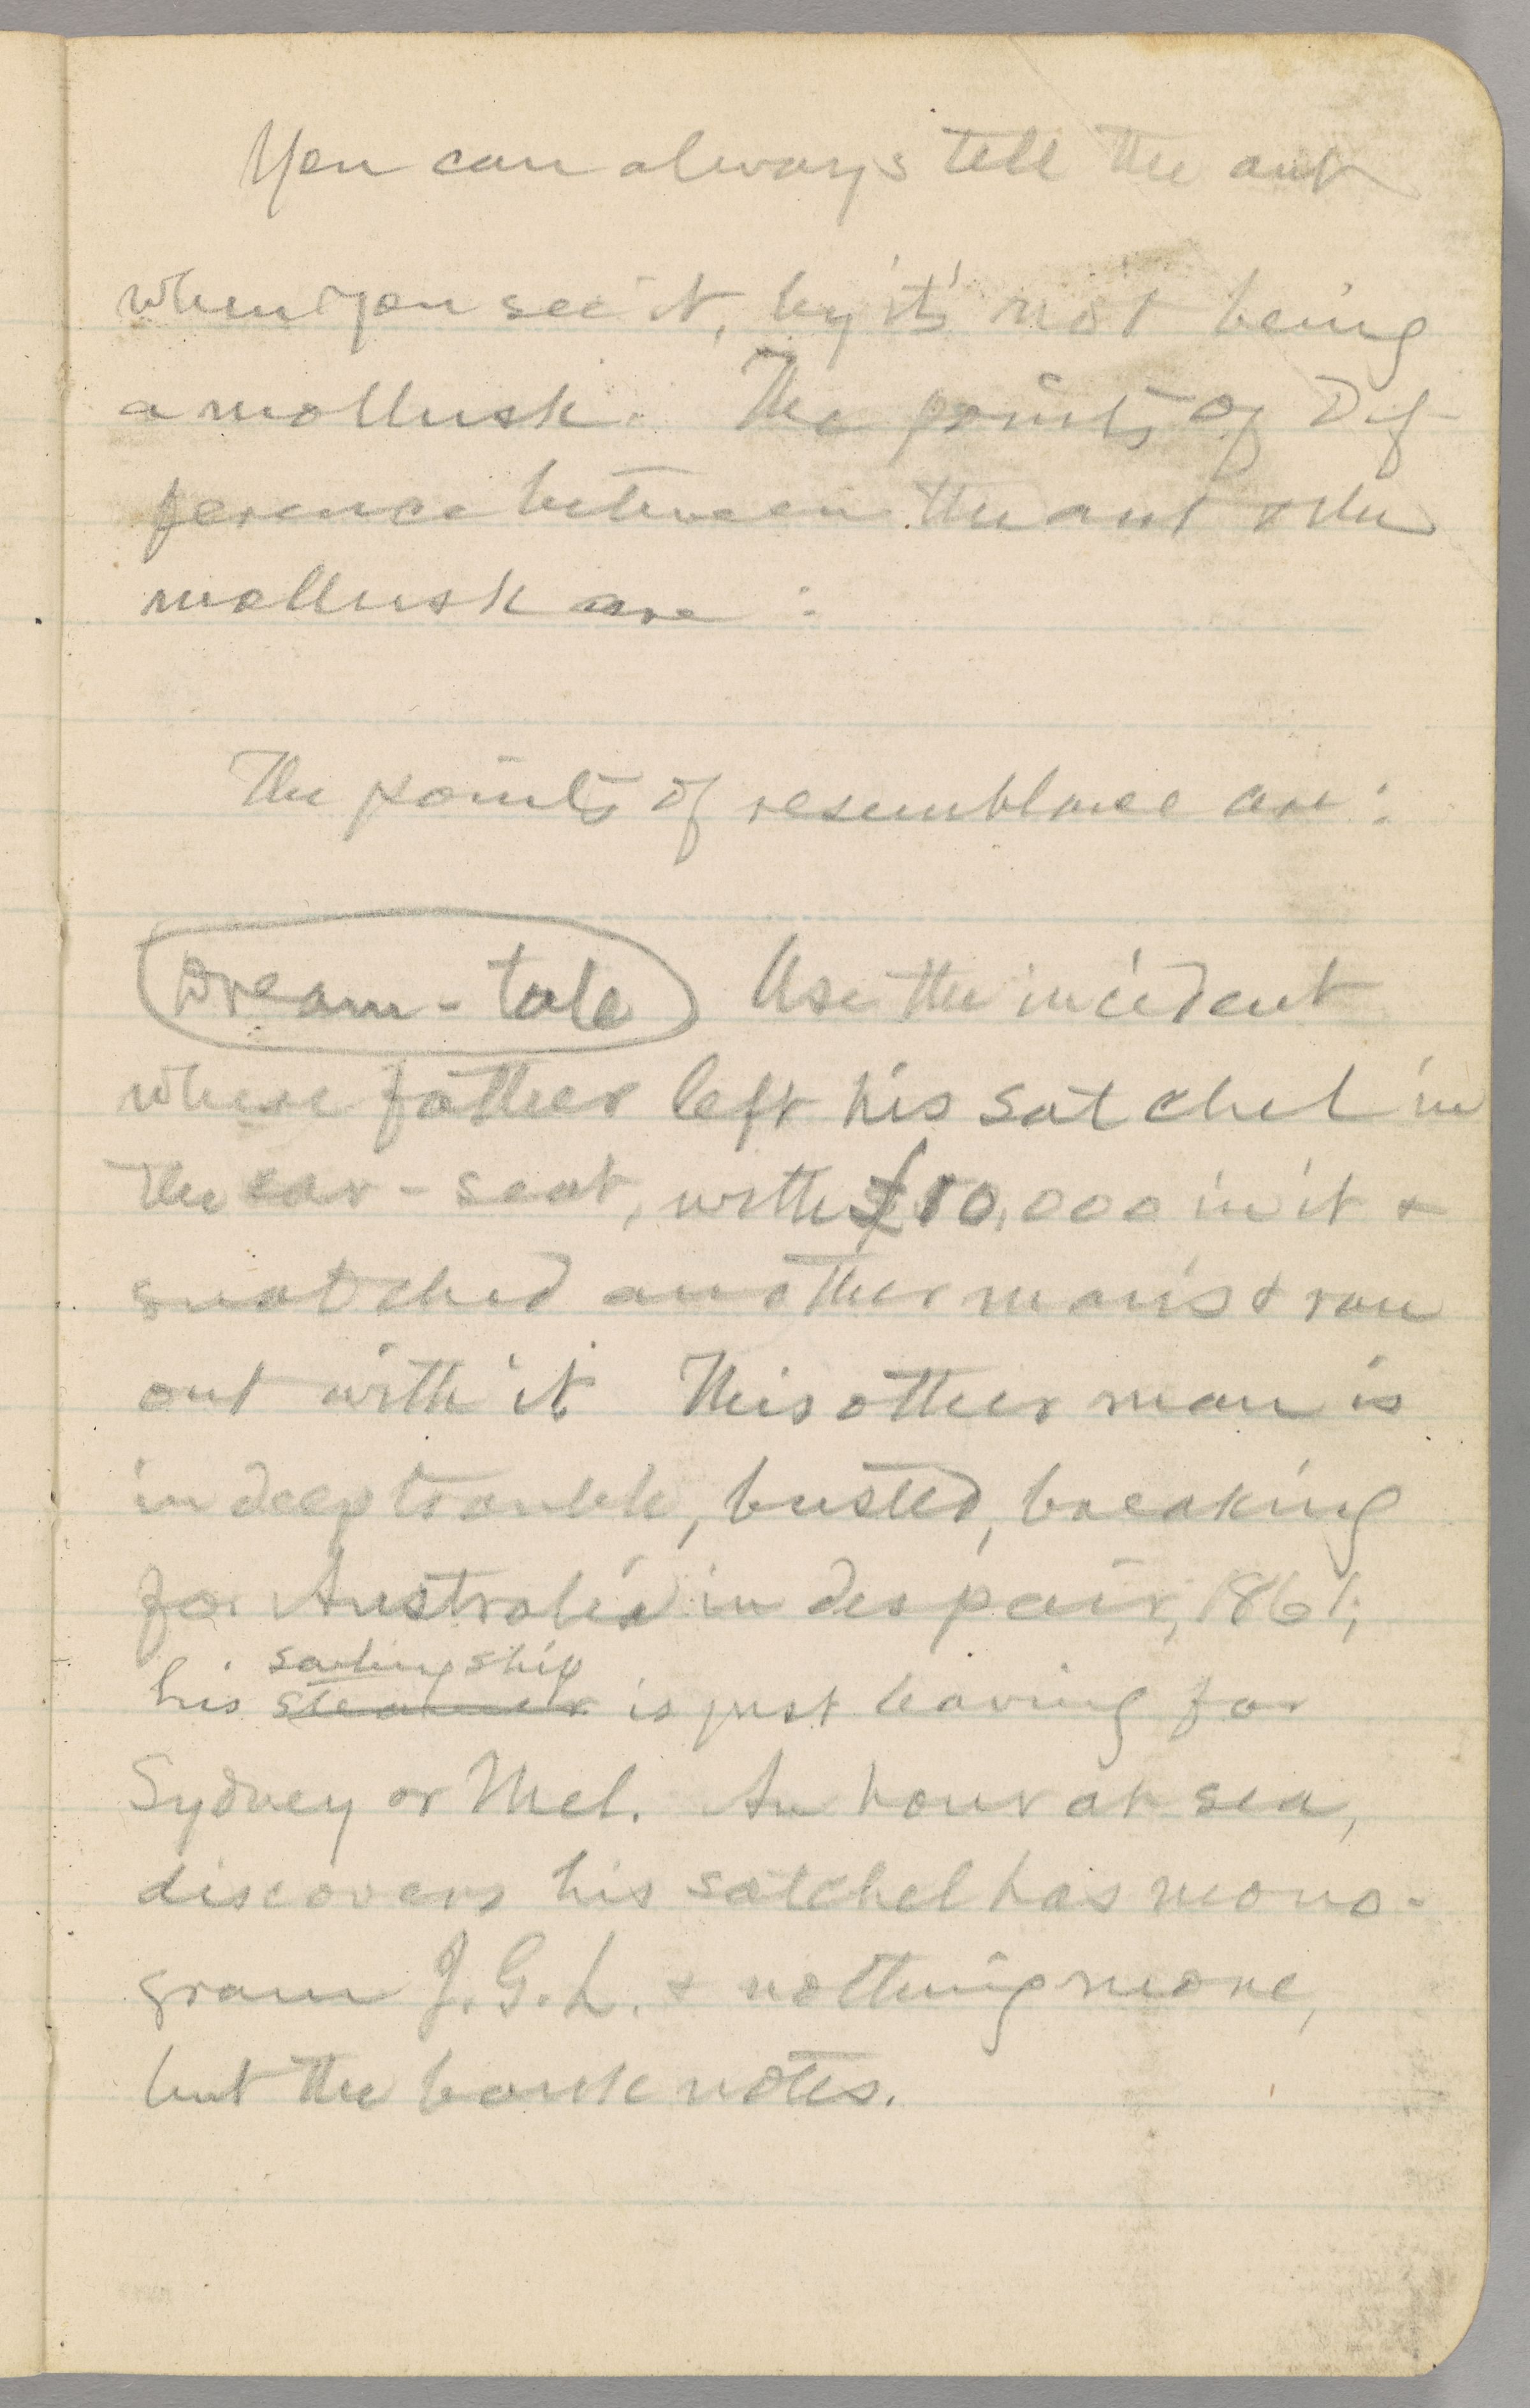 You can always tell the ant
when you see it, by it's not being
a mollusk. The points of dif-
ference between the ant & the
mollusk are :
The points of resemblance are :
Dream-tale Use the incident
where father left his satchel in
the car-seat, with £10,000 in it &
snatched another man's & ran
out with it. This other man is
in deep trouble, busted, breaking
for Australia in despair, 1861;
sailing ship
his steamer is just leaving for
Sydney or Mel. An hour at sea,
discovers his satchel has mono-
gram J.G.L. & nothing more,
but the bank notes.